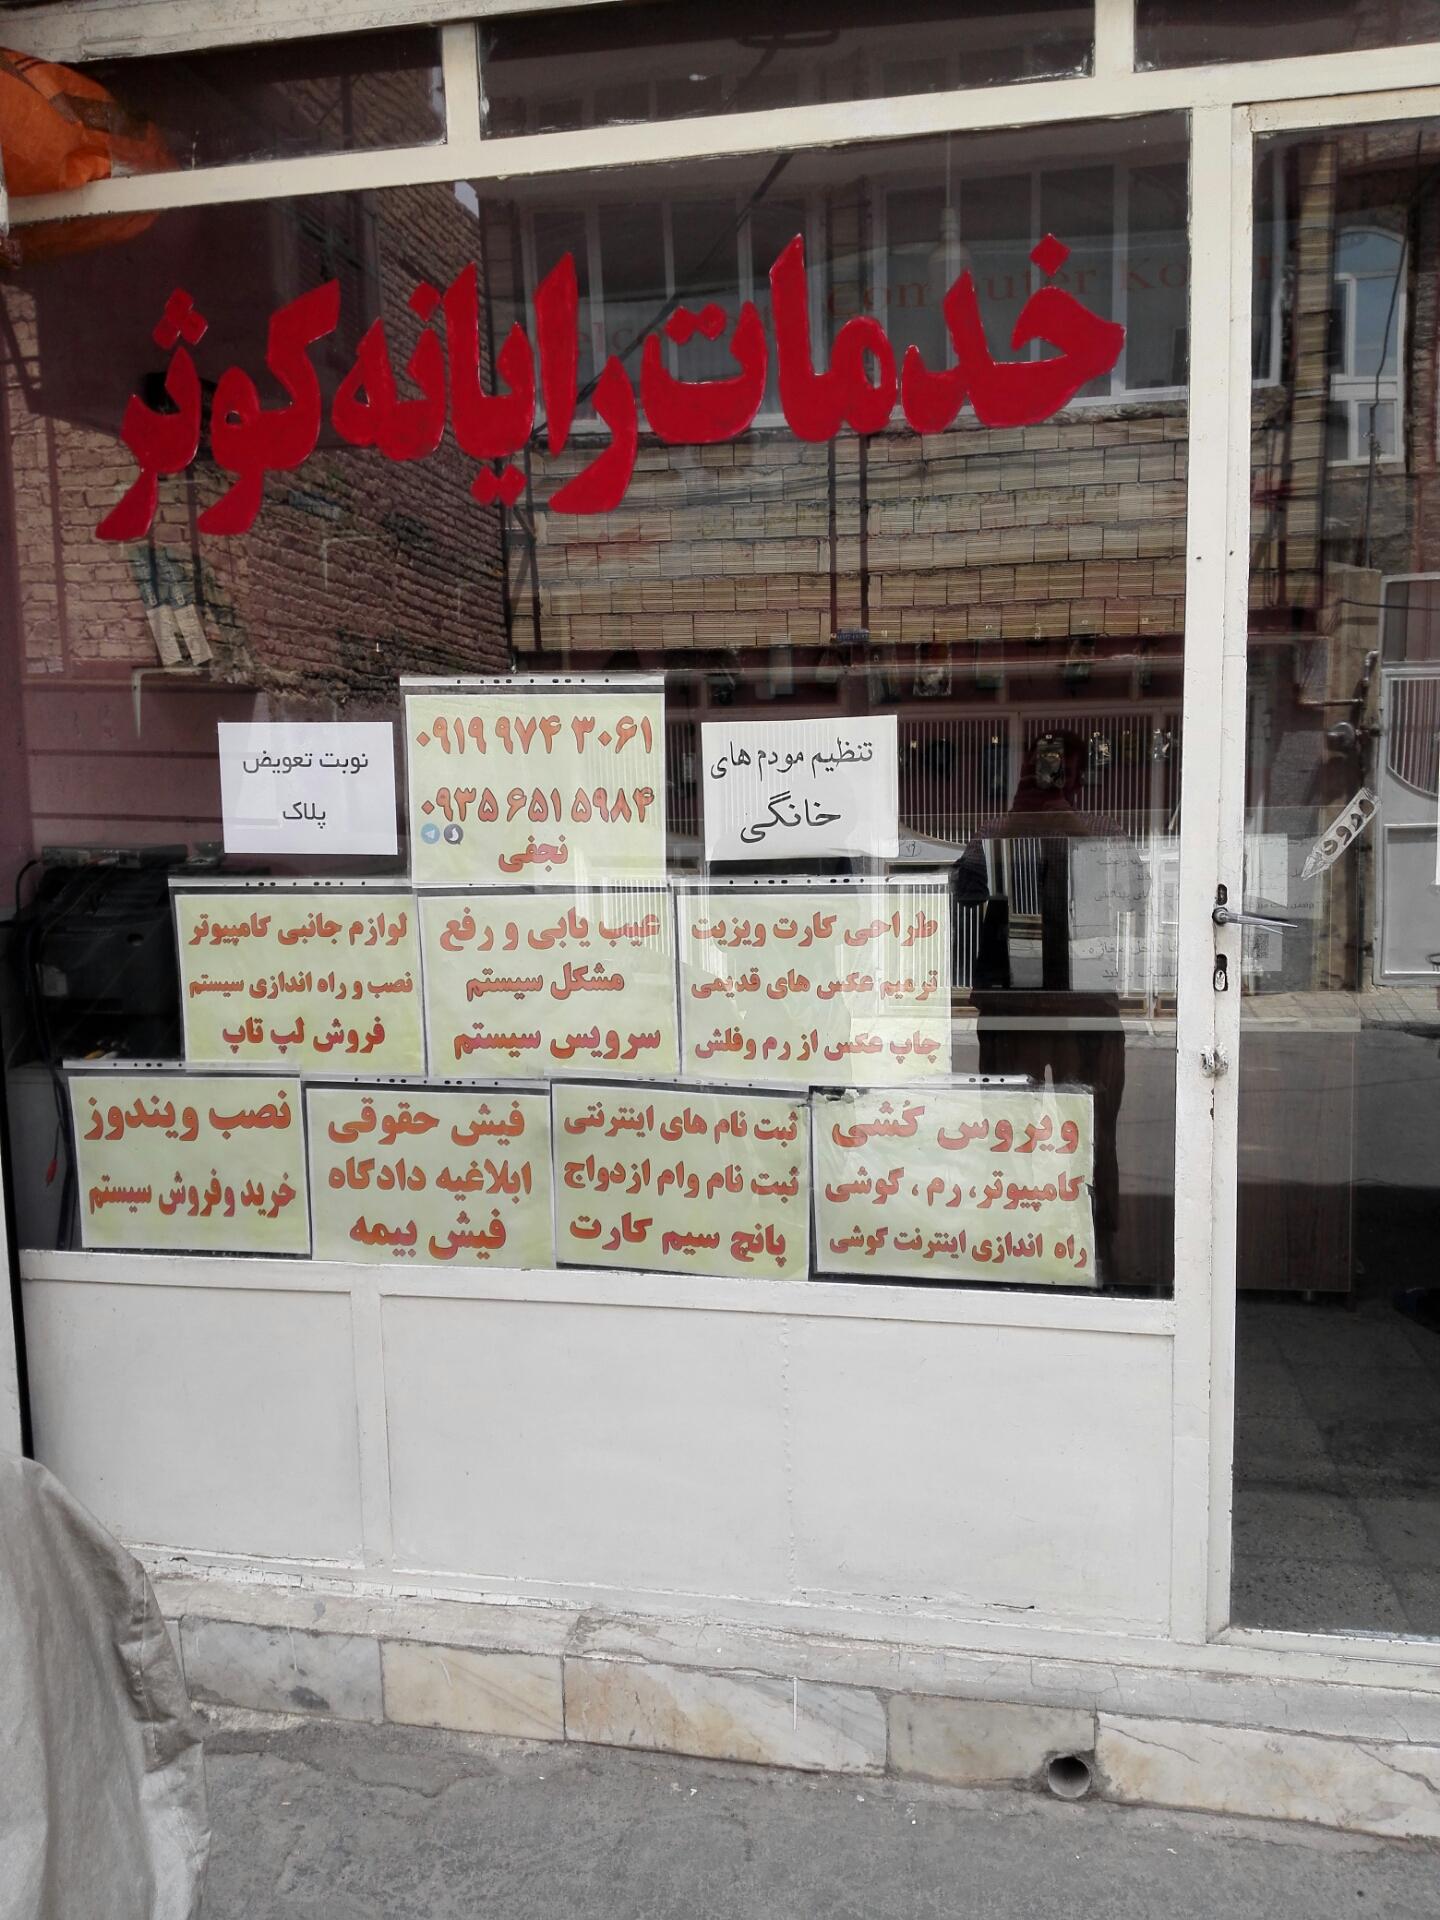 خدمات رایانه کوثر
۰۹۱۹ ۹۷۴ ۳۰۶۱
۰۹۳۵ ۶۵۱ ۵۹۸۴
نجفی
تنظیم مودم های
خانگی
نوبت تعویض
پلاک
طراحی کارت ویزیت
ترمیم عکس های قدیمی
چاپ عکس از رم وفلش
عیب یابی و رفع
مشکل سیستم
سرویس سیستم
لوازم جانبی کامپیوتر
نصب و راه اندازی سیستم
فروش لپ تاپ
ویروس کُشی
کامپیوتر، رم ، گوشی
راه اندازی اینترنت گوشی
ثبت نام های اینترنتی
ثبت نام وام ازدواج
پانچ سیم کارت
فیش حقوقی
ابلاغیه دادگاه
فیش بیمه
نصب ویندوز
خرید وفروش سیستم